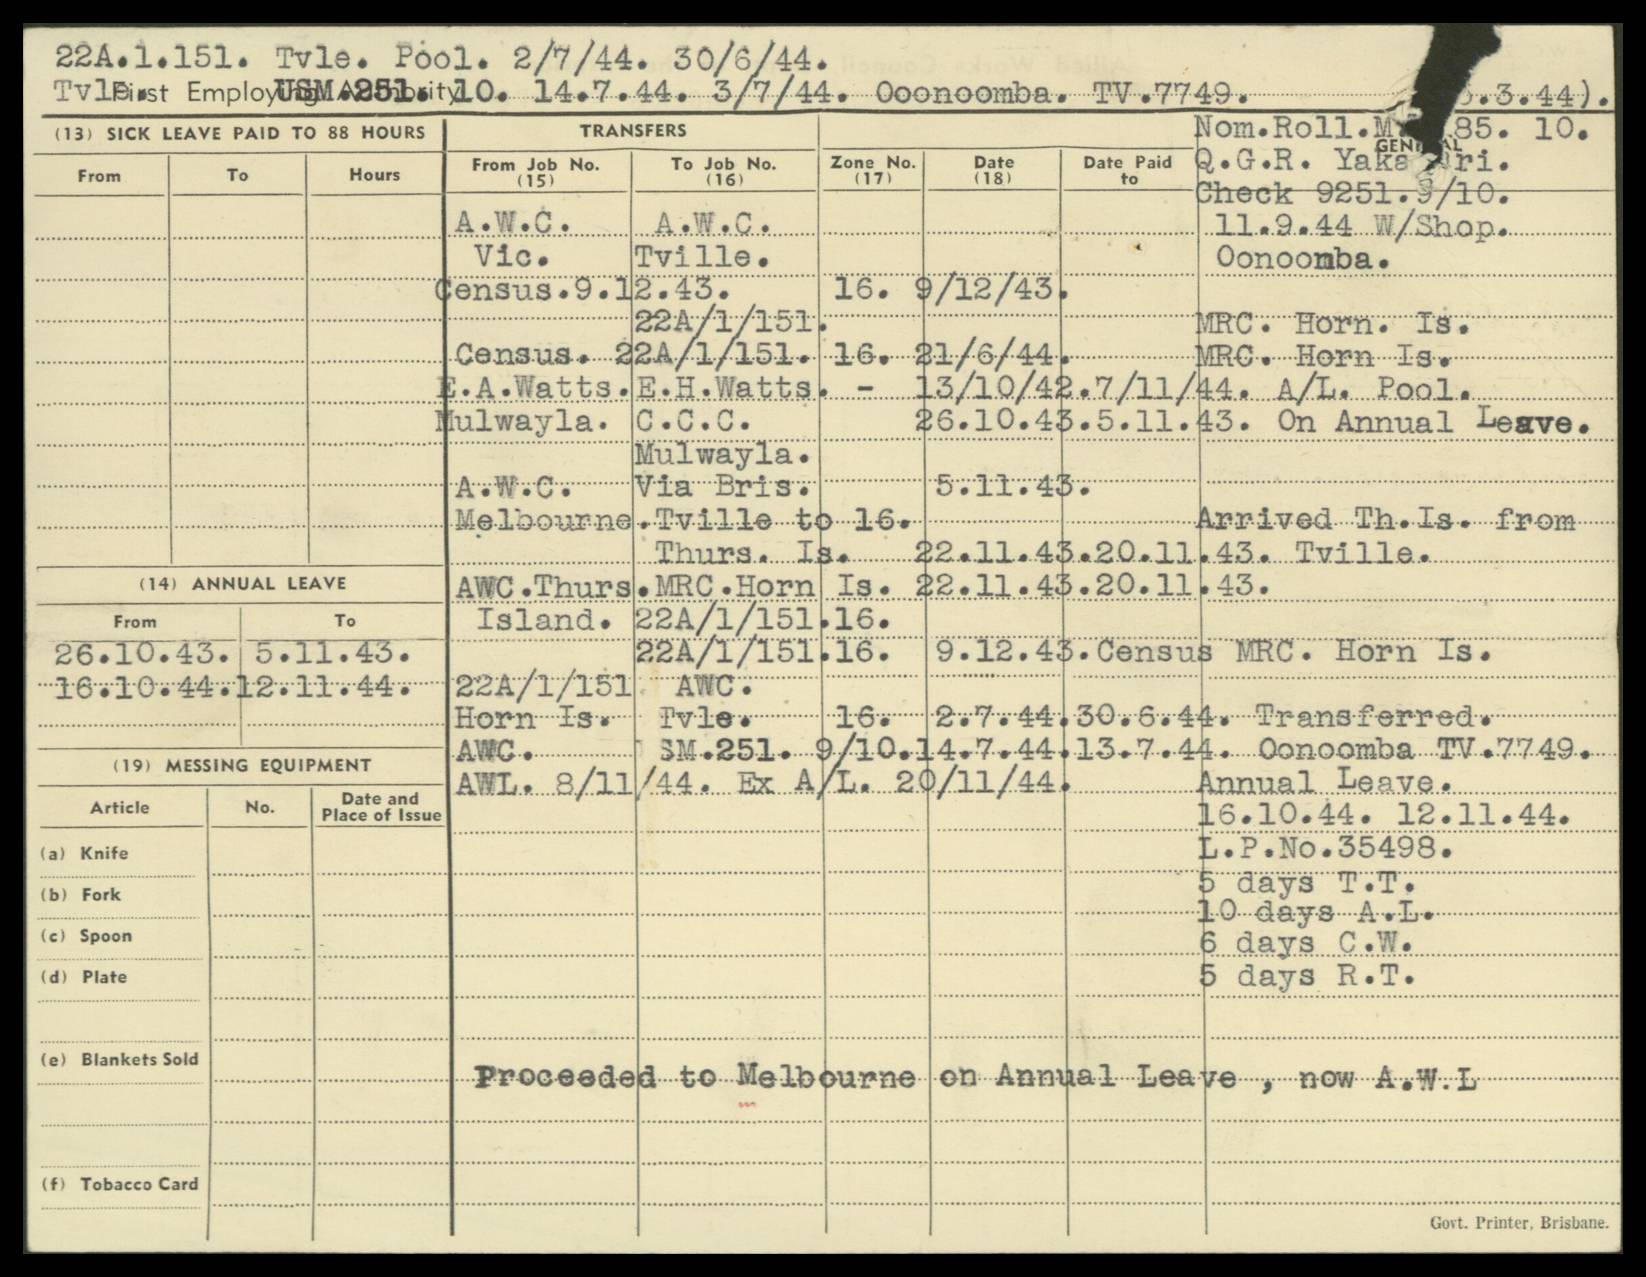 22A.1.151. Tvle. Pool. 2/7/44. 30/6/44.
Tvle. First Employing Authority USM.251. 10. 14.7.44. 3/7/44. Ooonoomba. TV.7749. .3.44).
(13) SICK LEAVE PAID TO 88 HOURS TRANSFERS Nom.Roll. 85. 10.
GENERAL
From To Hours From Job No. (15) To Job No. (16) Zone No. (17) Date (18) Date Paid to Q.G.R. Yaka ri.
Check 9251.9/10.
A.W.C. A.W.C. 11.9.44 W/Shop.
Vic. Tville. Oonoomba.
Census.9.12.43. 16. 9/12/43.
22A/1/151. MRC. Horn. Is.
Census. 22A/1/151. 16. 21/6/44. MRC. Horn Is.
E.A.Watts. E.H.Watts. - 13/10/42.7/11/44. A/L. Pool.
Mulwayla. C.C.C. 26.10.43.5.11.43. On Annual Leave.
Mulwayla.
A.W.C. Via Bris. 5.11.43.
Melbourne.Tville to 16. Arrived Th.Is. from
Thurs. Is. 22.11.43.20.11.43. Tville.
(14) ANNUAL LEAVE AWC.Thurs.MRC.Horn Is. 22.11.43.20.11.43.
From To Island. 22A/1/151.16.
26.10.43. 5.11.43. 22A/1/151.16. 9.12.43.Census MRC. Horn Is.
16.10.44.12.11.44. 22A/1/151 AWC.
Horn Is. Tvle. 16. 2.7.44.30.6.44. Transferred.
AWC. SM.251. 9/10.14.7.44.13.7.44. Oonoomba TV.7749.
(19) MESSING EQUIPMENT AWL. 8/11/44. Ex A/L. 20/11/44. Annual Leave.
Article No. Date and Place of Issue 16.10.44. 12.11.44.
(a) Knife L.P.No.35498.
5 days T.T.
(b) Fork 10 days A.L.
(c) Spoon 6 days C.W.
(d) Plate 5 days R.T.
(e) Blankets Sold
Proceeded to Melbourne on Annual Leave , now A.W.L
(f) Tobacco Card
Govt. Printer, Brisbane.